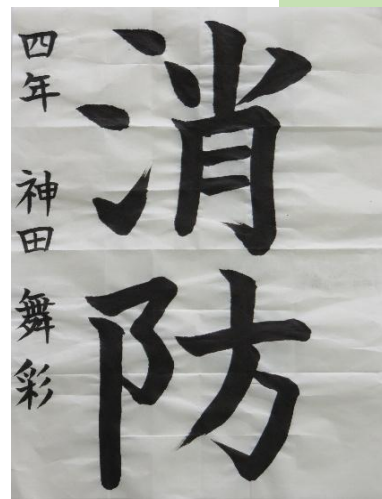 消防
四年 神田 舞彩